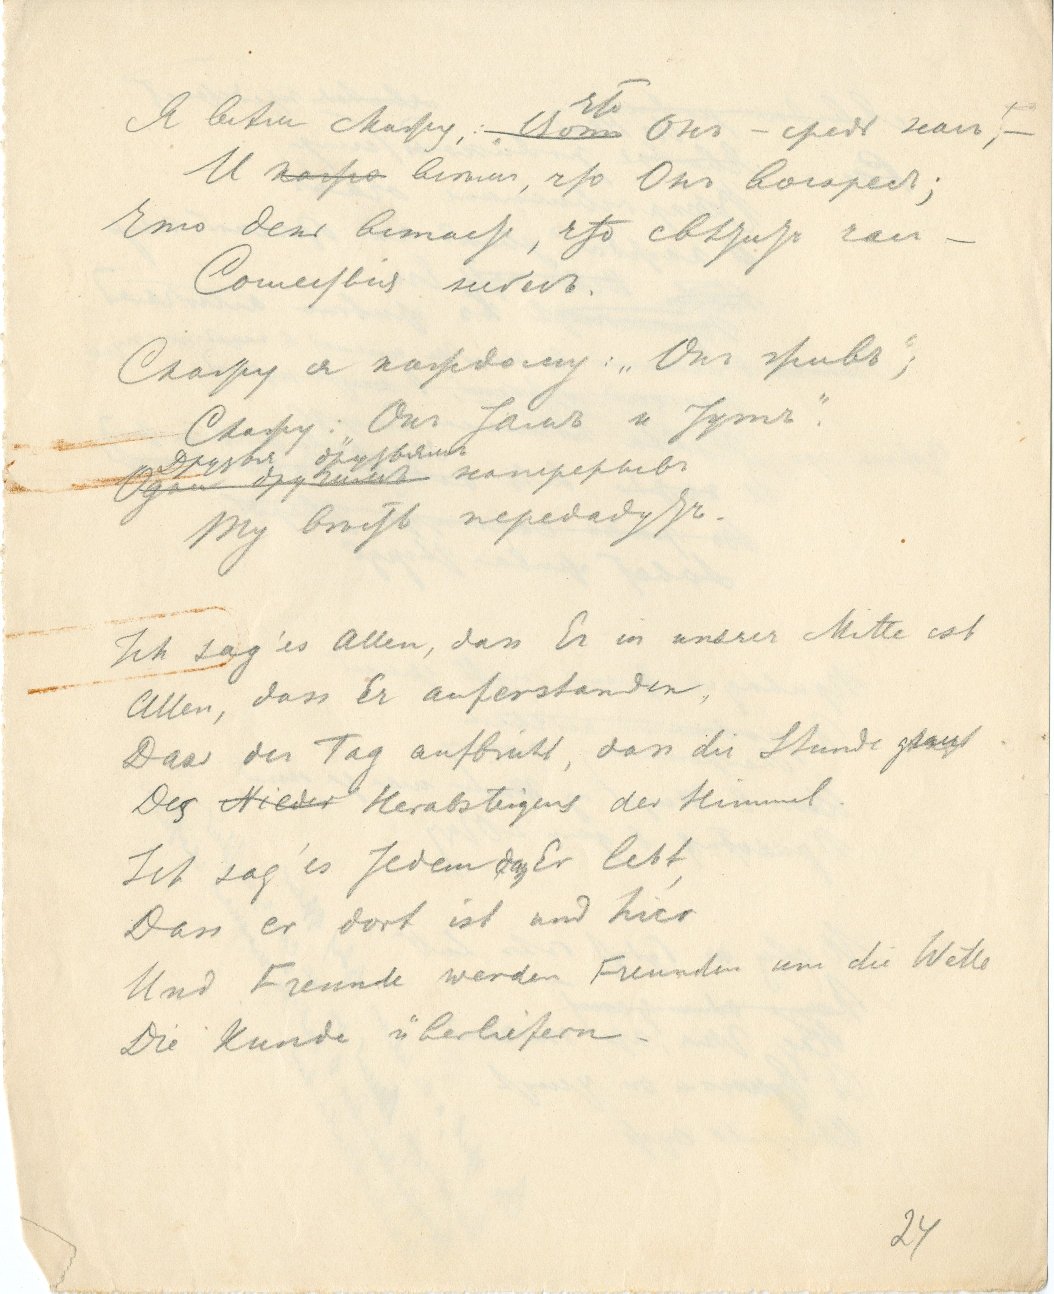 Я всѣмъ скажу, что Онъ – средь насъ, –
И всѣмъ, что Онъ воскресъ;
Что день встаетъ, что свѣтитъ часъ –
Сошествія небесъ.
Скажу я каждому: „Онъ живъ";
Скажу: Онъ тамъ и тутъ".
Друзья друзьямъ наперерывъ
Ту вѣсть передадутъ.
Ich sag' es Allen, dass Er in unsrer Mitte ist
Allen, dass Er auferstanden,
Dass der Tag aufbricht, dass die Stunde
Des Herabsteigens der Himmel.
Ich sag' es Jedem das Er lebt,
Dass er dort ist und hier
Und Freunde werden Freunden um die Wette
Die Kunde überliefern –
24